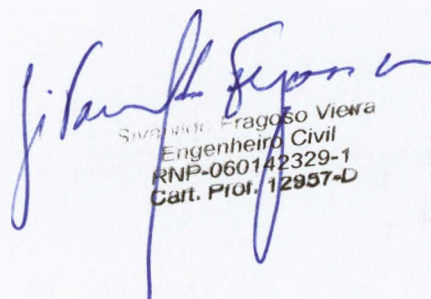 Fragoso Vieira
Engenheiro Civil
RNP-060142329-1
Cart. Prof. 12957-D